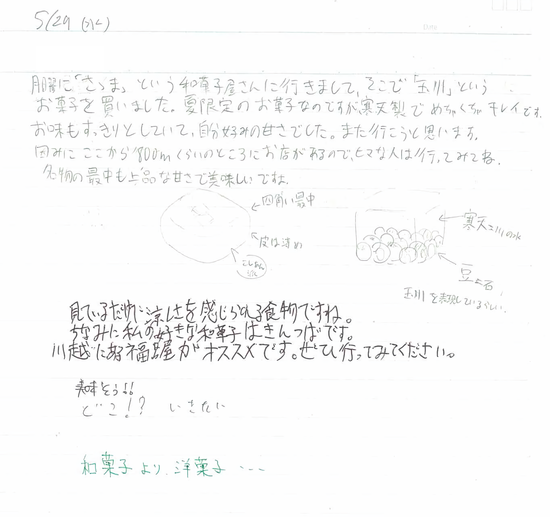 5/29 (水)
月曜に「さつま」という和菓子屋さんに行きまして、そこで「玉川」という
お菓子を買いました。夏限定のお菓子なのですが寒天製でめちゃくちゃキレイです。
お味もすっきりとしていて、自分好みの甘さでした。また行こうと思います。
因みにここから800mくらいのところにお店があるので、ヒマな人は行ってみてね。
名物の最中も上品な甘さで美味しいですね。
四角い最中
皮は薄め
こしあん
寒天=川の水
豆=石
玉川を表現しているらしい。
見ているだけに涼しさを感じられる食物ですね。
ちなみに私の好きな和菓子はきんつばです。
川越にある福呂屋がオススメです。ぜひ行ってみてください。
美味そう!!
どこ!? いきたい
和菓子より、洋菓子…